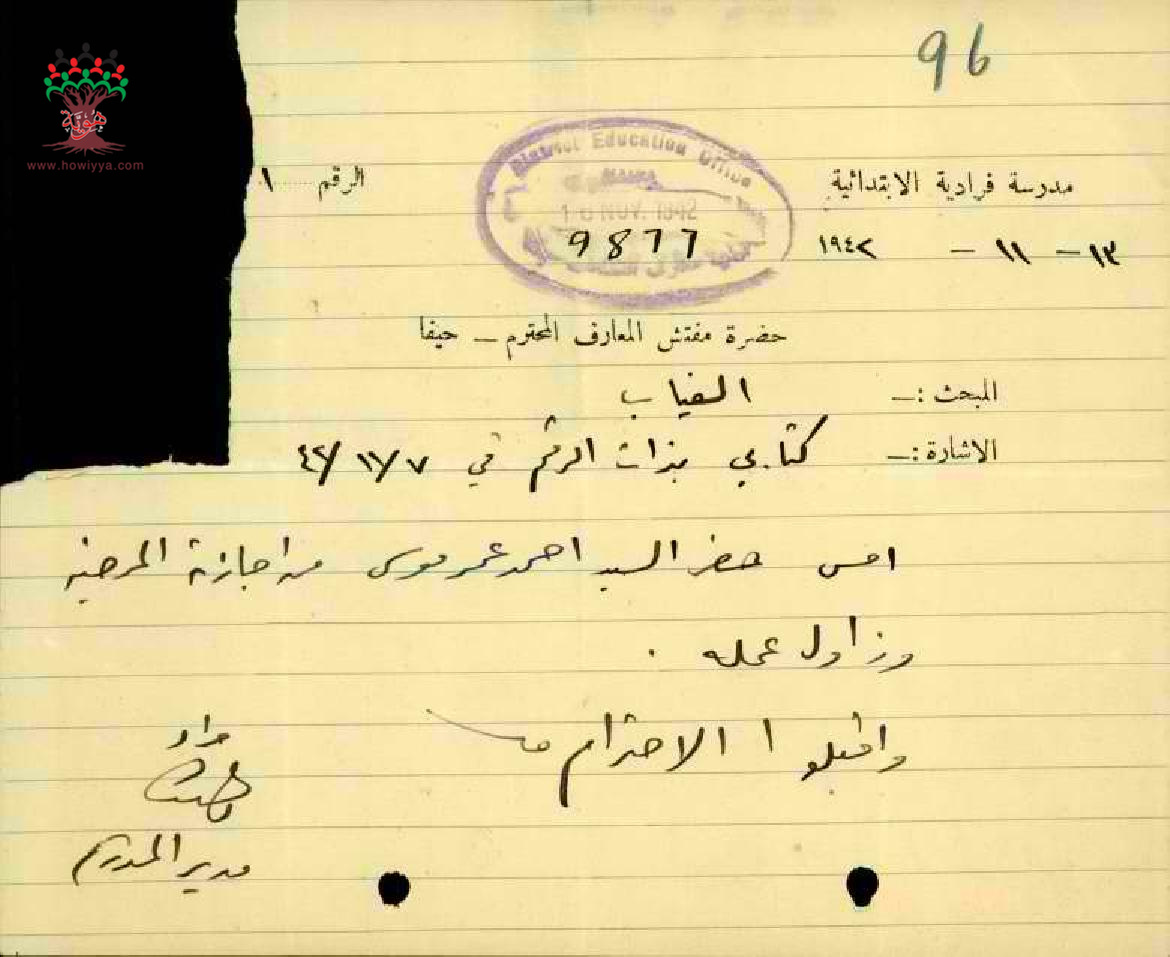 96
مدرسة فرادية الابتدائية
الرقم ١
District Education Office
HAIFA
16 NOV. 1942
9877
١٣ - ١١ - ١٩٤٢
حضرة مفتش المعارف المحترم — حيفا
المبحث :— الغياب
الاشارة :— كتابي بذات الرقم في ٤٢/١١/٧
امس حضر السيد احمد عمر موسى من اجازته المرضية
وزاول عمله .
واقبلوا الاحترام
مدير المدرسة
هوية
www.howiyya.com